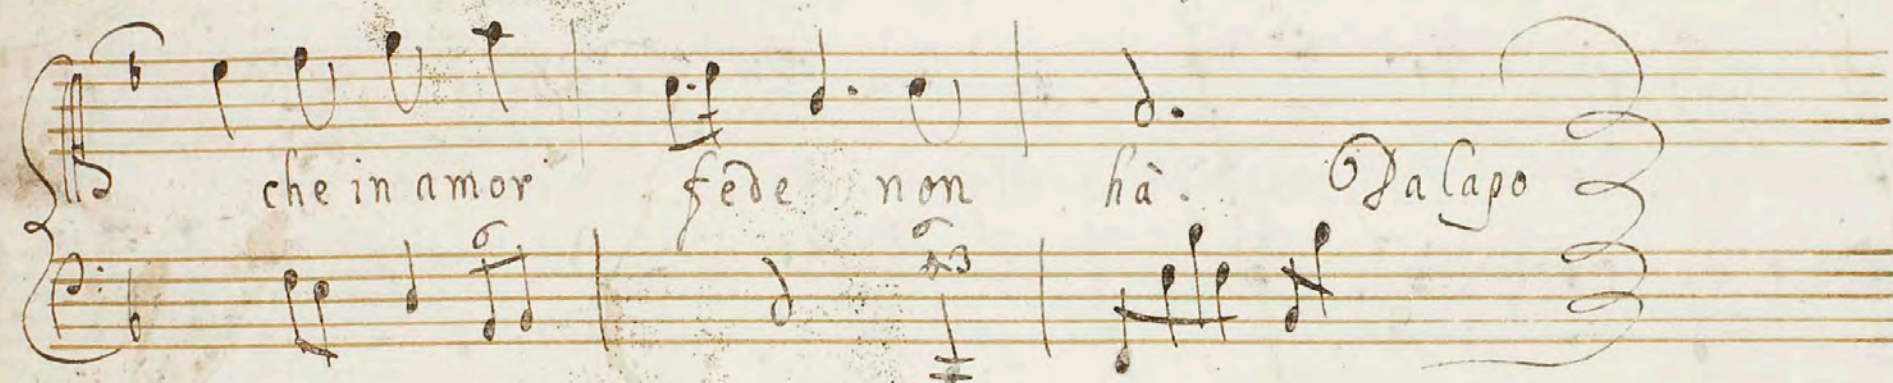 che in amor fede non hà. Da Capo
6 6
4 3